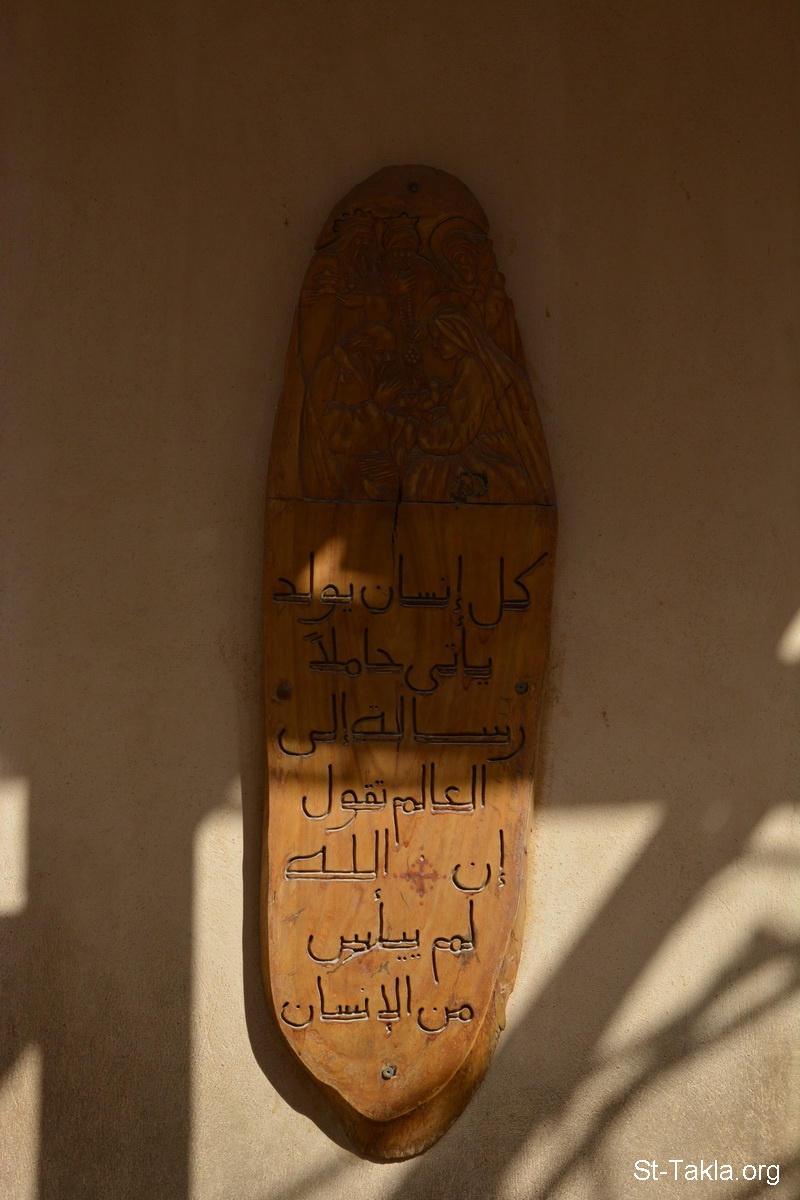 كل إنسان يولد
يأتي حاملاً
رسالة إلى
العالم تقول
إن الله
لم ييأس
من الإنسان
St-Takla.org